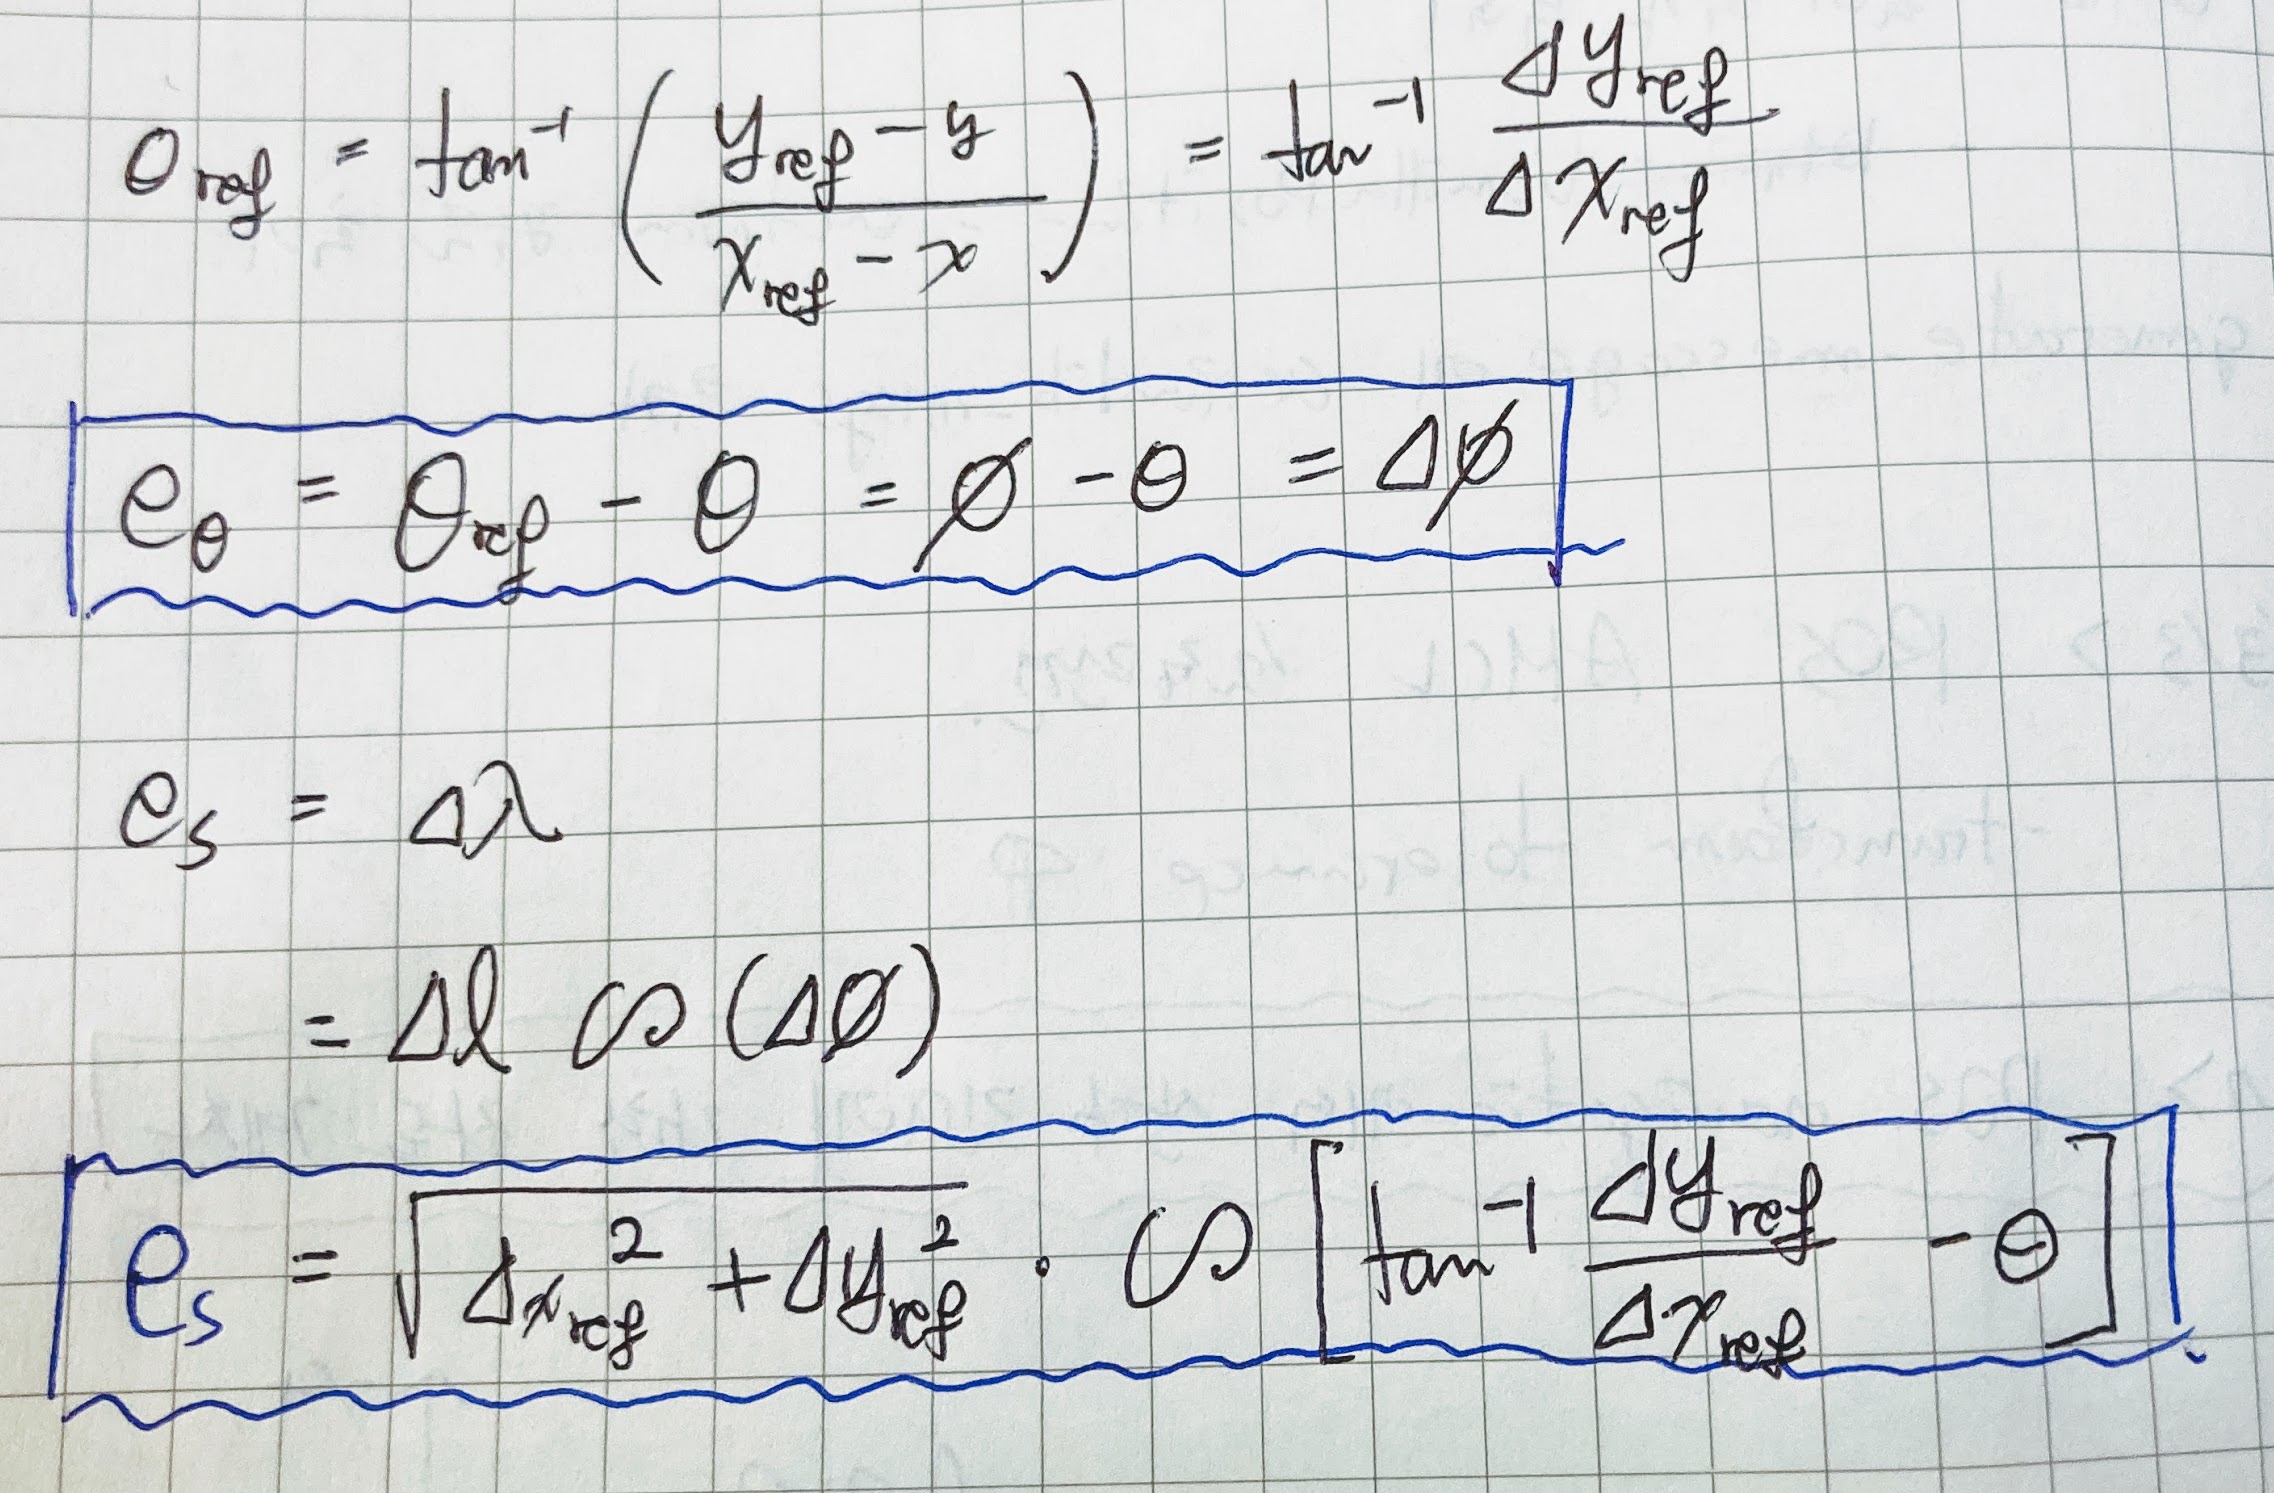 θ_ref = tan⁻¹ ( (y_ref − y) / (x_ref − x) ) = tan⁻¹ Δy_ref / Δx_ref
e_θ = θ_ref − θ = ø − θ = Δø
e_s = Δλ
= Δl cos (Δø)
e_s = √(Δx_ref² + Δy_ref²) · cos [ tan⁻¹ Δy_ref / Δx_ref − θ ]